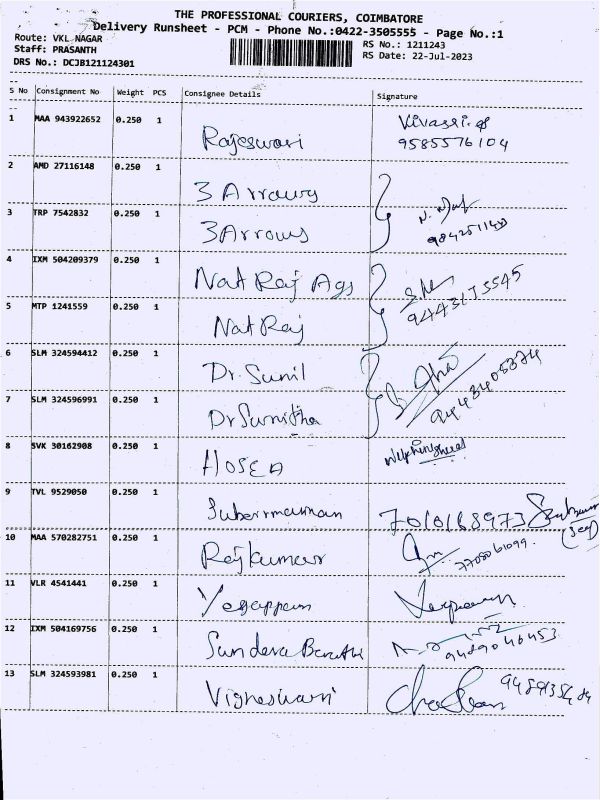 THE PROFESSIONAL COURIERS, COIMBATORE
Delivery Runsheet - PCM - Phone No.:0422-3505555 - Page No.:1
Route: VKL NAGAR
Staff: PRASANTH
DRS No.: DCJB121124301
RS No.: 1211243
RS Date: 22-Jul-2023
S No Consignment No Weight PCS Consignee Details Signature
1 MAA 943922652 0.250 1 Rajeswari
9585576104
2 AMD 27116148 0.250 1 3 Arrows
3 TRP 7542832 0.250 1 3Arrows
4 IXM 504209379 0.250 1 Nat Raj Ags
5 MTP 1241559 0.250 1 Nat Raj
6 SLM 324594412 0.250 1 Dr. Sunil
7 SLM 324596991 0.250 1 Dr Sunitha
9443405374
8 SVK 30162908 0.250 1 HOSEA
9 TVL 9529050 0.250 1
7010168973
10 MAA 570282751 0.250 1 Rajkumar
7708061099.
11 VLR 4541441 0.250 1 Yegappan
12 IXM 504169756 0.250 1 Sundera Barathi
9489046453
13 SLM 324593981 0.250 1 Vigneshwari